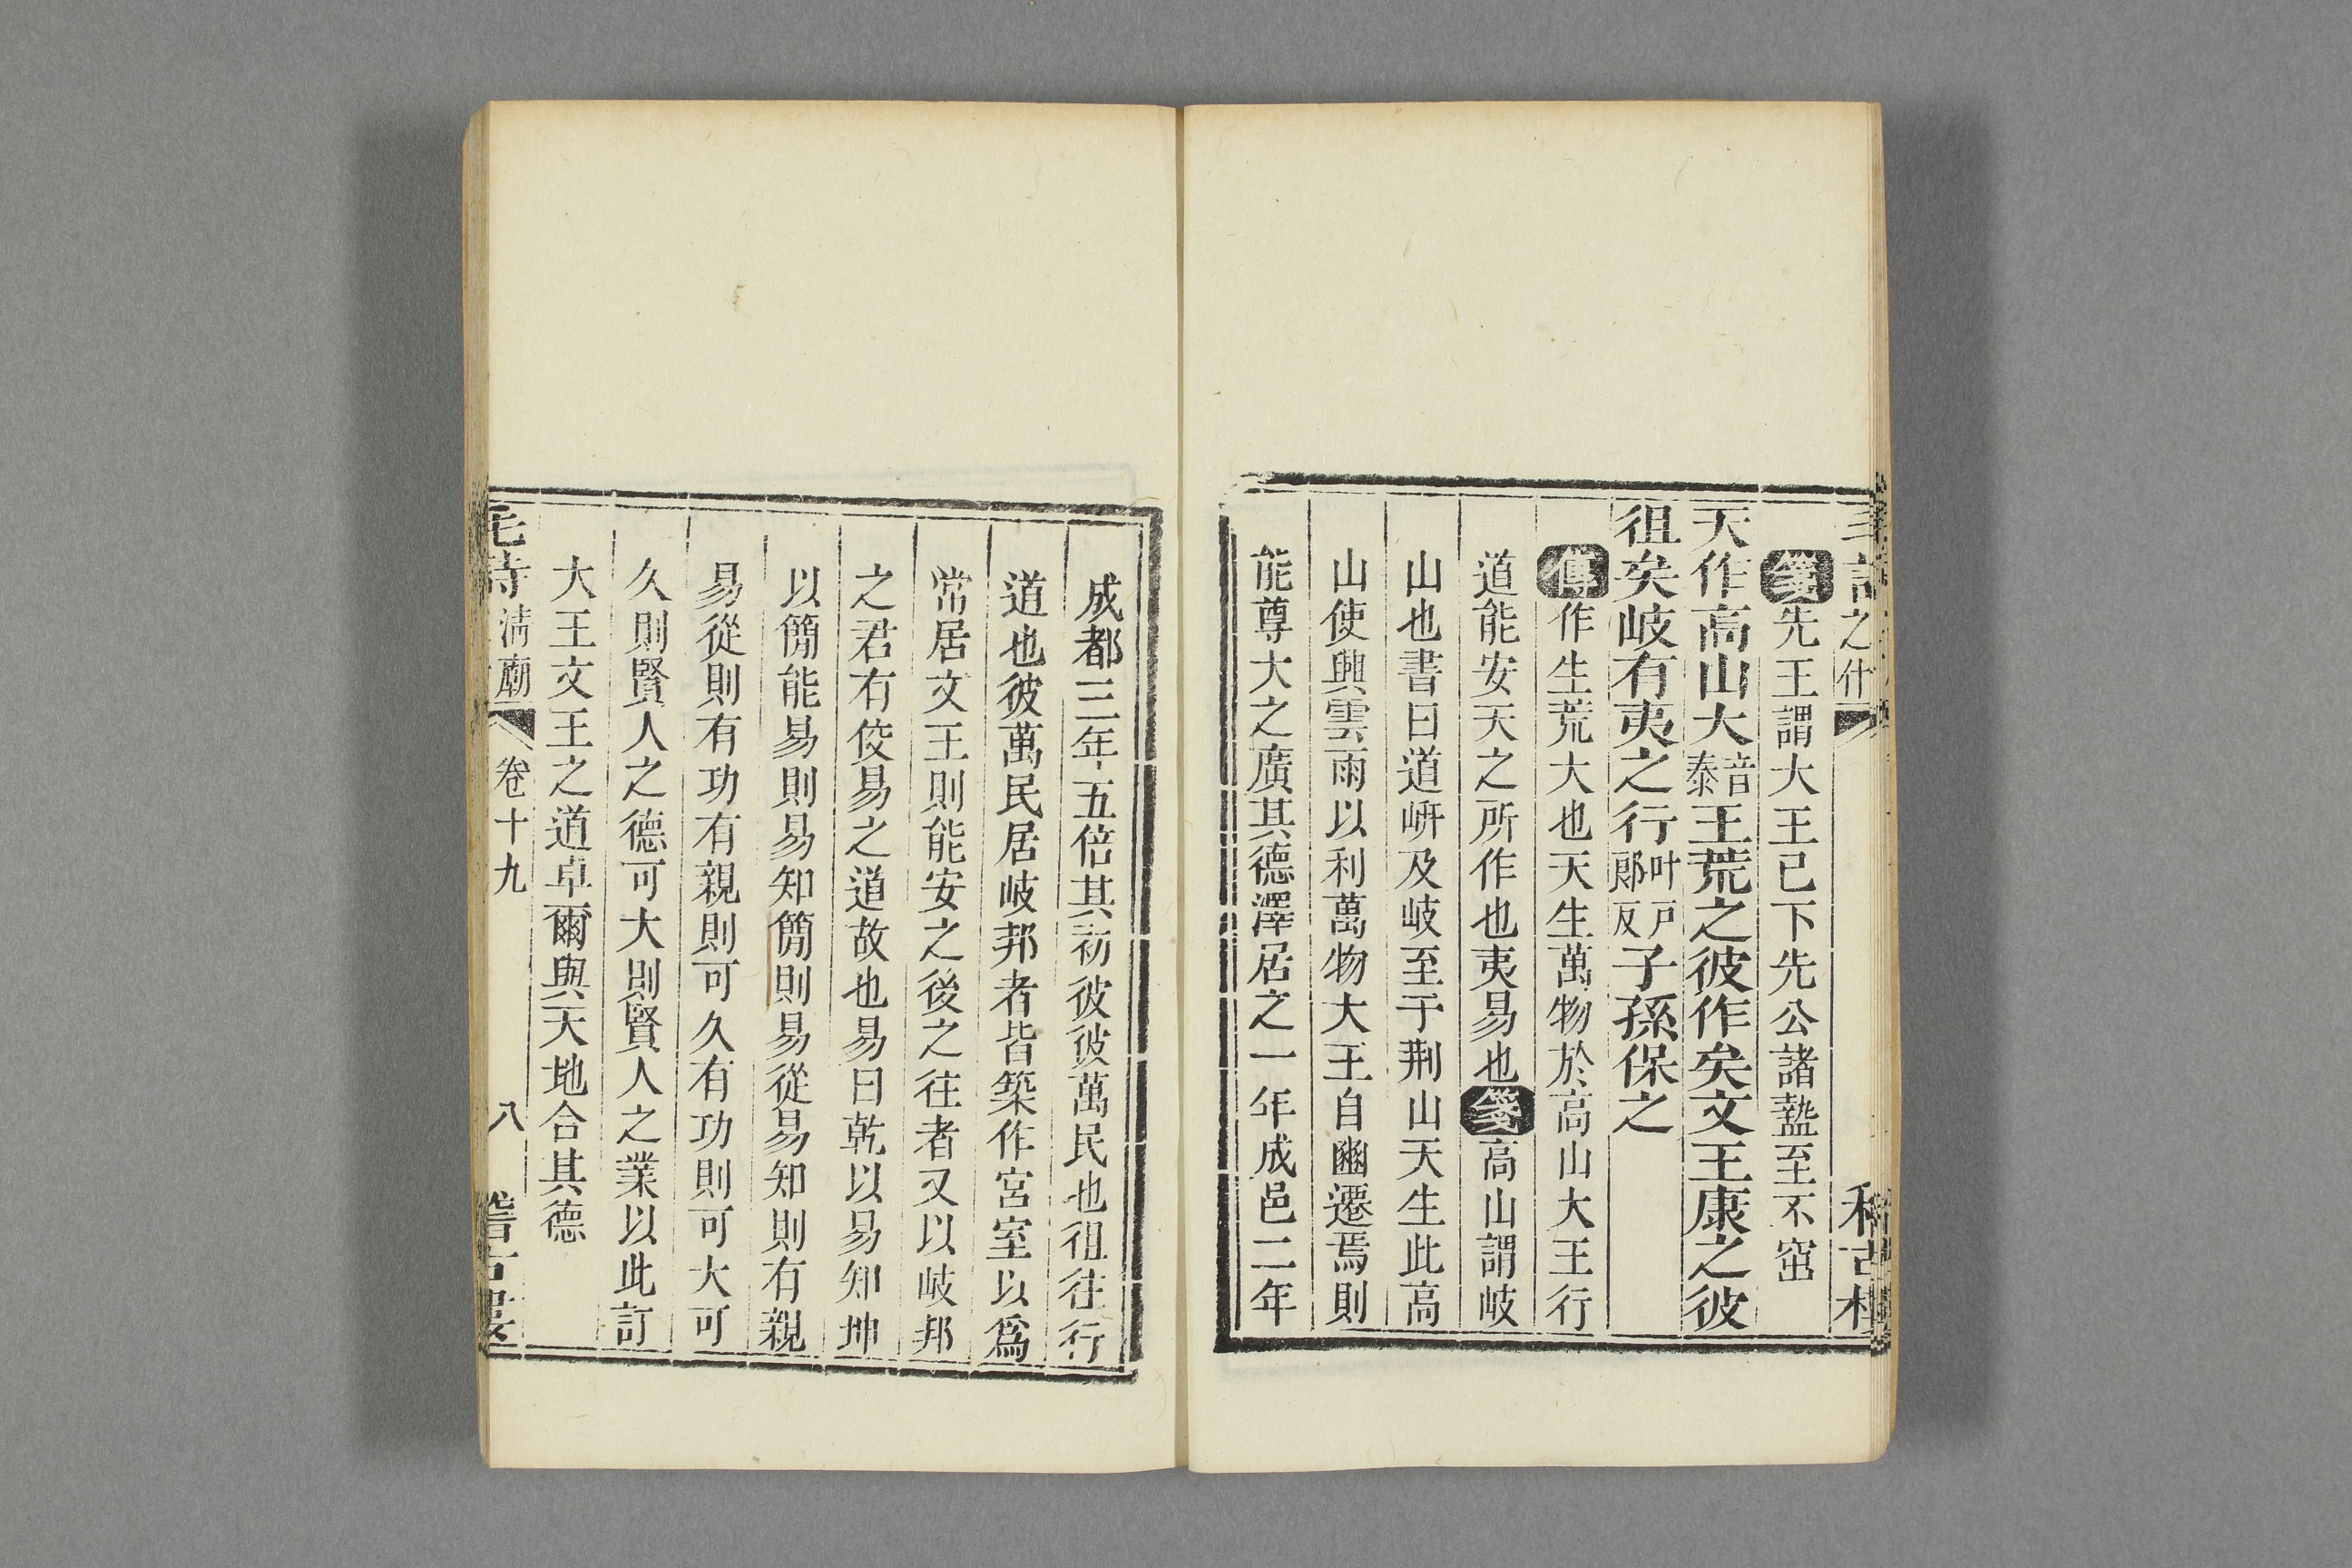 箋先王謂大王已下先公諸盩至不窋
天作高山大音泰王荒之彼作矣文王康之彼
徂矣岐有夷之行叶戸郞反子孫保之
傳作生荒大也天生萬物於高山大王行
道能安天之所作也夷易也箋高山謂岐
山也書曰道岍及岐至于荆山天生此高
山使興雲雨以利萬物大王自豳遷焉則
能尊大之廣其德澤居之一年成邑二年
成都三年五倍其初彼彼萬民也徂往行
道也彼萬民居岐邦者皆築作宮室以爲
常居文王則能安之後之往者又以岐邦
之君有佼易之道故也易曰乾以易知坤
以簡能易則易知簡則易從易知則有親
易從則有功有親則可久有功則可大可
久則賢人之德可大則賢人之業以此訂
大王文王之道卓爾與天地合其德
毛詩淸廟 卷十九 八 稽古樓